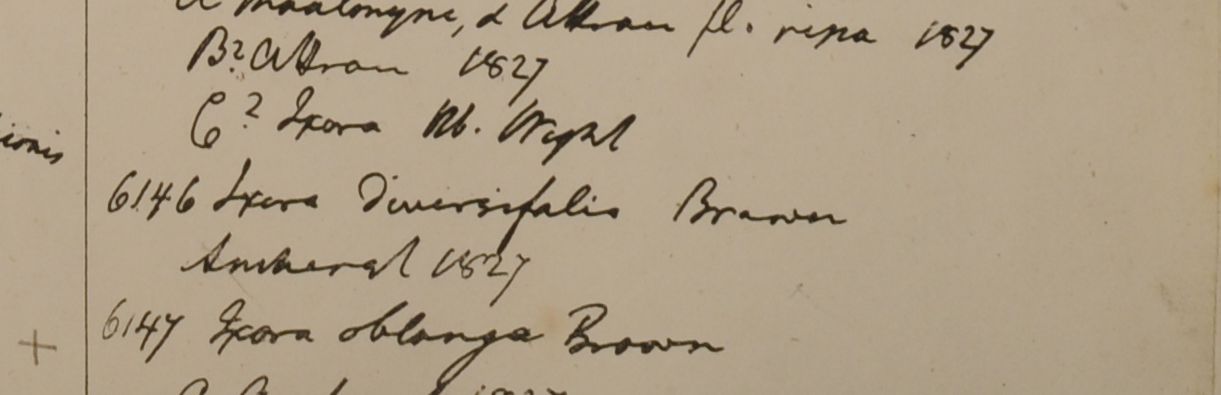 Maalmyne, d Attran fl. ripa 1827
B? Attran 1827
C? Ixora hb. Wight
ionis
6146 Ixora diversifolia Brown
Amherst 1827
6147 Ixora oblonga Brown
+
1827